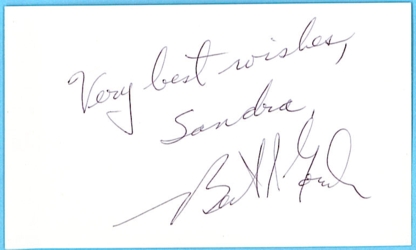 Very best wishes,
Sandra,